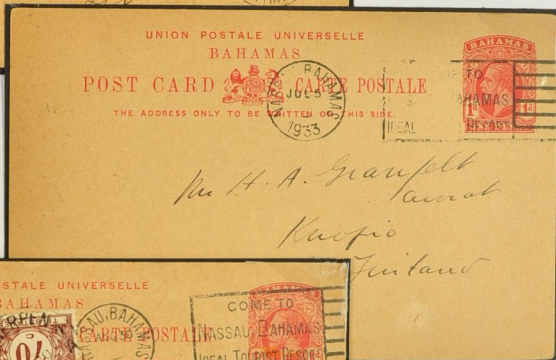 UNION POSTALE UNIVERSELLE
BAHAMAS
POST CARD CARTE POSTALE
THE ADDRESS ONLY TO BE WRITTEN ON THIS SIDE.
NASSAU BAHAMAS
JUL 5
1933
BAHAMAS
TO
AHAMAS
IDEAL RESORT
1D
Mr H. A. Granfelt
Kuopio
Finland
STALE UNIVERSELLE
BAHAMAS
CARTE POSTALE
NASSAU, BAHAMAS
ERPEN
70
COME TO
NASSAU, BAHAMAS
IDEAL TOURIST RESORT